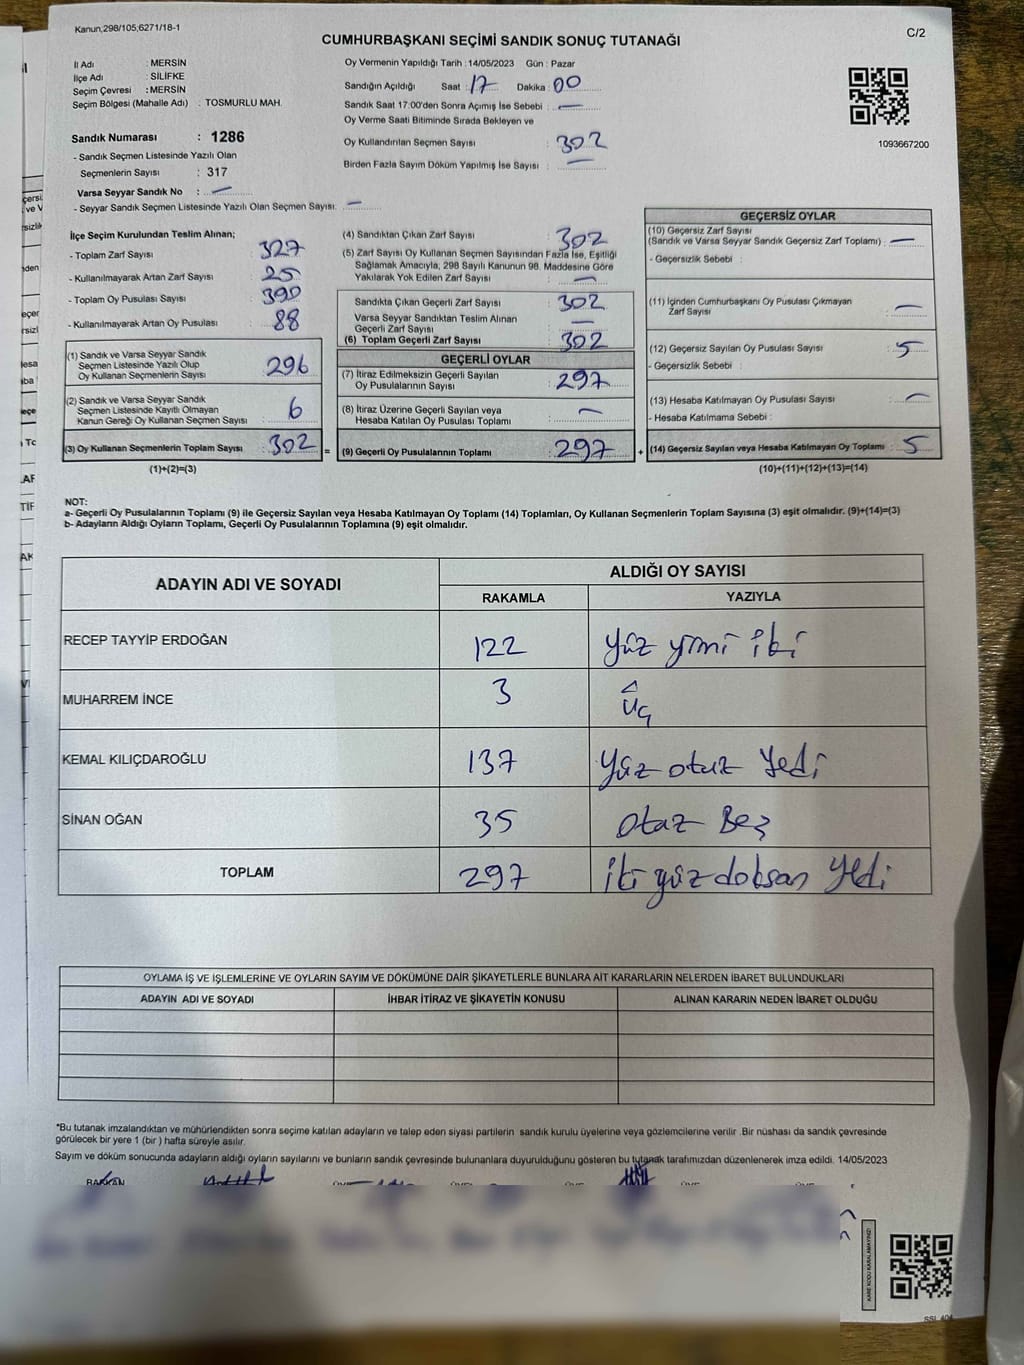 Kanun,298/105;6271/18-1
C/2
CUMHURBAŞKANI SEÇİMİ SANDIK SONUÇ TUTANAĞI
İl Adı : MERSİN
İlçe Adı : SİLİFKE
Seçim Çevresi : MERSİN
Seçim Bölgesi (Mahalle Adı) : TOSMURLU MAH.
Sandık Numarası : 1286
- Sandık Seçmen Listesinde Yazılı Olan
Seçmenlerin Sayısı : 317
Varsa Seyyar Sandık No : —
- Seyyar Sandık Seçmen Listesinde Yazılı Olan Seçmen Sayısı: —
Oy Vermenin Yapıldığı Tarih : 14/05/2023 Gün : Pazar
Sandığın Açıldığı Saat : 17 Dakika : 00
Sandık Saat 17.00'den Sonra Açımış İse Sebebi : —
Oy Verme Saati Bitiminde Sırada Bekleyen ve
Oy Kullandırılan Seçmen Sayısı : 302
Birden Fazla Sayım Döküm Yapılmış İse Sayısı : —
1093667200
İlçe Seçim Kurulundan Teslim Alınan;
- Toplam Zarf Sayısı : 327
- Kullanılmayarak Artan Zarf Sayısı : 25
- Toplam Oy Pusulası Sayısı : 390
- Kullanılmayarak Artan Oy Pusulası : 88
(1) Sandık ve Varsa Seyyar Sandık
Seçmen Listesinde Yazılı Olup
Oy Kullanan Seçmenlerin Sayısı : 296
(2) Sandık ve Varsa Seyyar Sandık
Seçmen Listesinde Kayıtlı Olmayan
Kanun Gereği Oy Kullanan Seçmen Sayısı : 6
(3) Oy Kullanan Seçmenlerin Toplam Sayısı : 302 =
(1)+(2)=(3)
(4) Sandıktan Çıkan Zarf Sayısı : 302
(5) Zarf Sayısı Oy Kullanan Seçmen Sayısından Fazla İse, Eşitliği
Sağlamak Amacıyla, 298 Sayılı Kanunun 98. Maddesine Göre
Yakılarak Yok Edilen Zarf Sayısı : —
Sandıkta Çıkan Geçerli Zarf Sayısı : 302
Varsa Seyyar Sandıktan Teslim Alınan
Geçerli Zarf Sayısı : —
(6) Toplam Geçerli Zarf Sayısı : 302
GEÇERLİ OYLAR
(7) İtiraz Edilmeksizin Geçerli Sayılan
Oy Pusulalarının Sayısı : 297
(8) İtiraz Üzerine Geçerli Sayılan veya
Hesaba Katılan Oy Pusulası Toplamı : —
(9) Geçerli Oy Pusulalarının Toplamı : 297 +
GEÇERSİZ OYLAR
(10) Geçersiz Zarf Sayısı
(Sandık ve Varsa Seyyar Sandık Geçersiz Zarf Toplamı) : —
- Geçersizlik Sebebi :
(11) İçinden Cumhurbaşkanı Oy Pusulası Çıkmayan
Zarf Sayısı : —
(12) Geçersiz Sayılan Oy Pusulası Sayısı : 5
- Geçersizlik Sebebi :
(13) Hesaba Katılmayan Oy Pusulası Sayısı : —
- Hesaba Katılmama Sebebi :
(14) Geçersiz Sayılan veya Hesaba Katılmayan Oy Toplamı : 5
(10)+(11)+(12)+(13)=(14)
NOT:
a- Geçerli Oy Pusulalarının Toplamı (9) ile Geçersiz Sayılan veya Hesaba Katılmayan Oy Toplamı (14) Toplamları, Oy Kullanan Seçmenlerin Toplam Sayısına (3) eşit olmalıdır. (9)+(14)=(3)
b- Adayların Aldığı Oyların Toplamı, Geçerli Oy Pusulalarının Toplamına (9) eşit olmalıdır.
ADAYIN ADI VE SOYADI
ALDIĞI OY SAYISI
RAKAMLA YAZIYLA
RECEP TAYYİP ERDOĞAN 122 yüz yirmi iki
MUHARREM İNCE 3 üç
KEMAL KILIÇDAROĞLU 137 yüz otuz yedi
SİNAN OĞAN 35 otuz Beş
TOPLAM 297 iki yüz doksan yedi
OYLAMA İŞ VE İŞLEMLERİNE VE OYLARIN SAYIM VE DÖKÜMÜNE DAİR ŞİKAYETLERLE BUNLARA AİT KARARLARIN NELERDEN İBARET BULUNDUKLARI
ADAYIN ADI VE SOYADI İHBAR İTİRAZ VE ŞİKAYETİN KONUSU ALINAN KARARIN NEDEN İBARET OLDUĞU
*Bu tutanak imzalandıktan ve mühürlendikten sonra seçime katılan adayların ve talep eden siyasi partilerin sandık kurulu üyelerine veya gözlemcilerine verilir .Bir nüshası da sandık çevresinde
görülecek bir yere 1 (bir ) hafta süreyle asılır.
Sayım ve döküm sonucunda adayların aldığı oyların sayılarını ve bunların sandık çevresinde bulunanlara duyurulduğunu gösteren bu tutanak tarafımızdan düzenlenerek imza edildi. 14/05/2023
BAŞKAN
KARE KODU KARALAMAYINIZ!